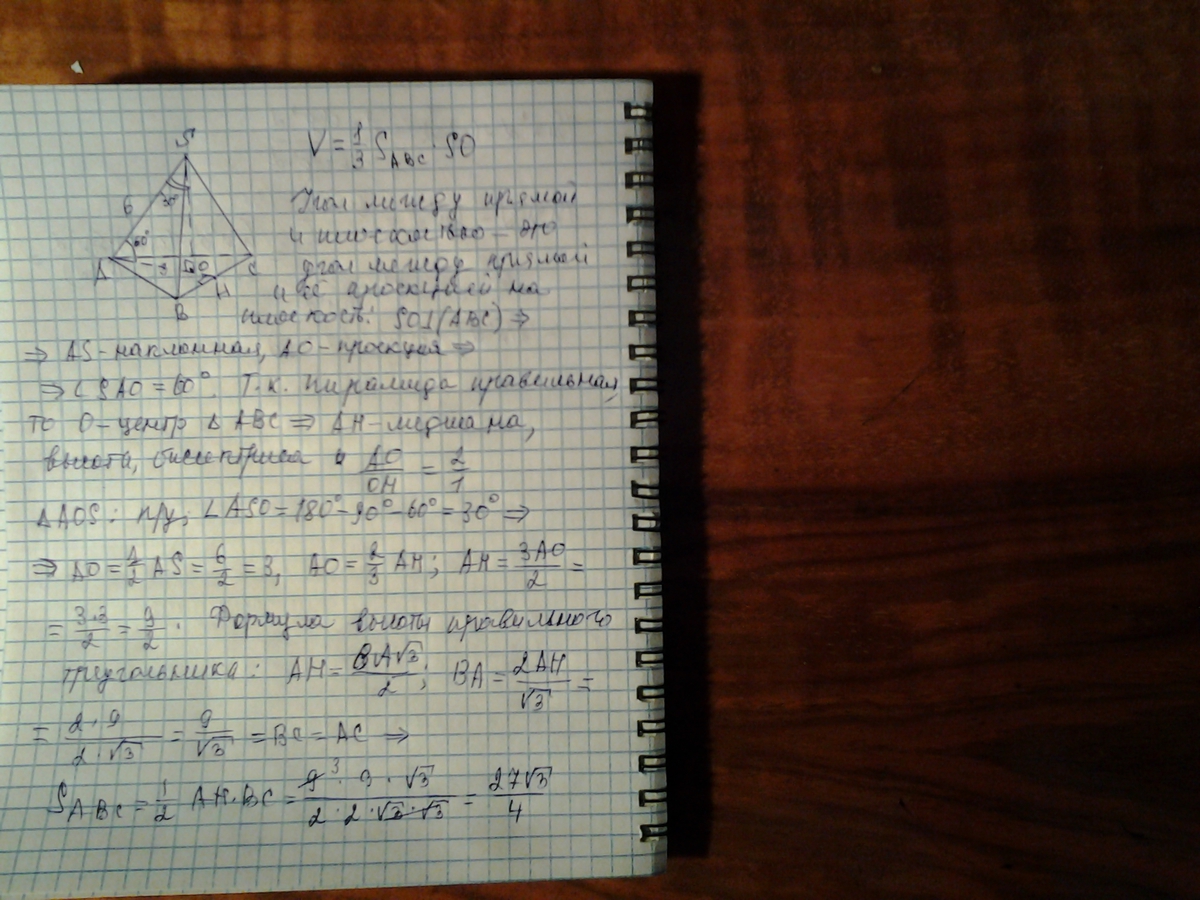 S
6
30°
60°
3
O
A
C
H
B
V = 1/3 S_ABC · SO
Угол между прямой
и плоскостью - это
угол между прямой
и её проекцией на
плоскость: SO⊥(ABC) ⇒
⇒ AS - наклонная, AO - проекция ⇒
⇒ ∠SAO = 60°. Т.к. пирамида правильная,
то O - центр ΔABC ⇒ AH - медиана,
высота, биссектриса и AO/OH = 2/1
ΔAOS: п/у; ∠ASO = 180° - 90° - 60° = 30° ⇒
⇒ AO = 1/2 AS = 6/2 = 3, AO = 2/3 AH; AH = 3AO/2 =
= 3·3/2 = 9/2. Формула высоты правильного
треугольника: AH = BA√3/2; BA = 2AH/√3 =
= 2·9/2·√3 = 9/√3 = BC = AC ⇒
S_ABC = 1/2 AH·BC = 9³ · 9 · √3/2·2·√3·√3 = 27√3/4